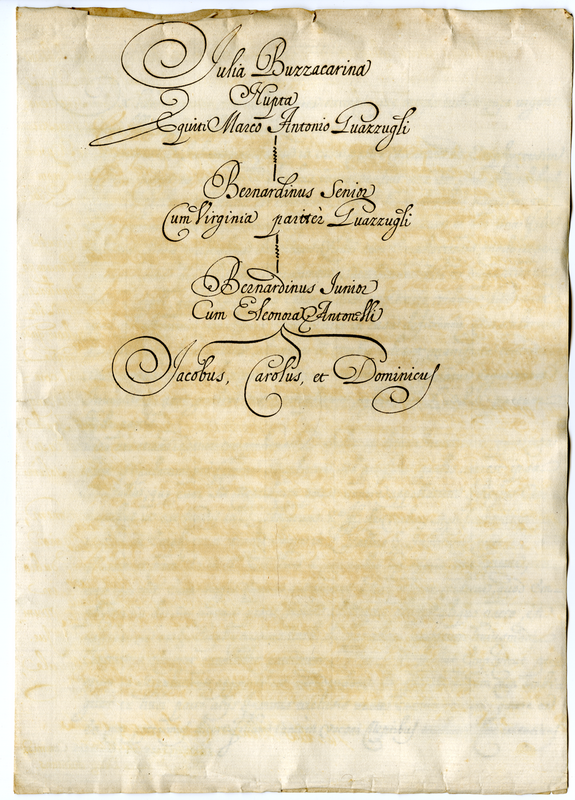 Julia Buzzacarina
Nupta
Equiti Marco Antonio Guazzugli
Bernardinus Senior
Cum Virginia paritèr Guazzugli
Bernardinus Junior
Cum Eleonora Antonelli
Jacobus, Carolus, et Dominicus